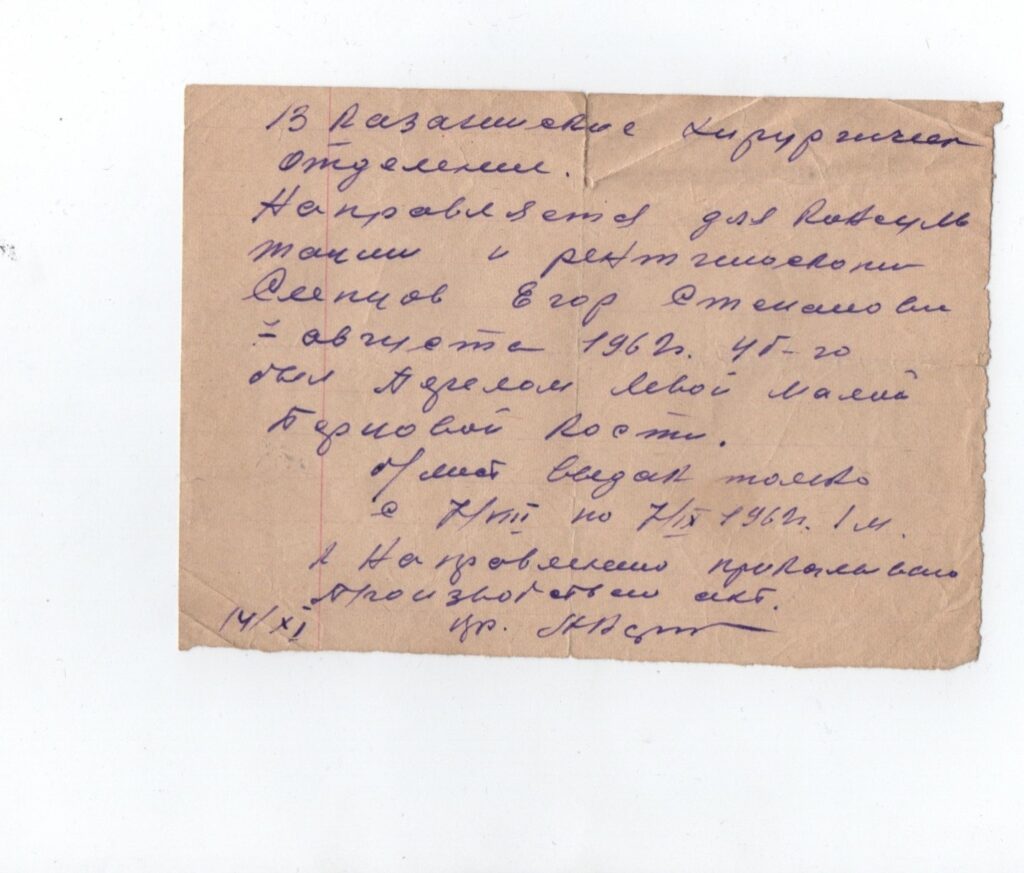 В Казанские хирургичес
отделении.
Направляется для консуль
тации и рентгеноскопии
Слепцов Егор Степанови
августа 1962г. у б-го
был перелом левой малой
берцовой кости.
б/лист выдан только
с 7/VIII по 7/IX 1962г. 1 м.
К направлению прикалываю
производствен акт.
14/XI вр.